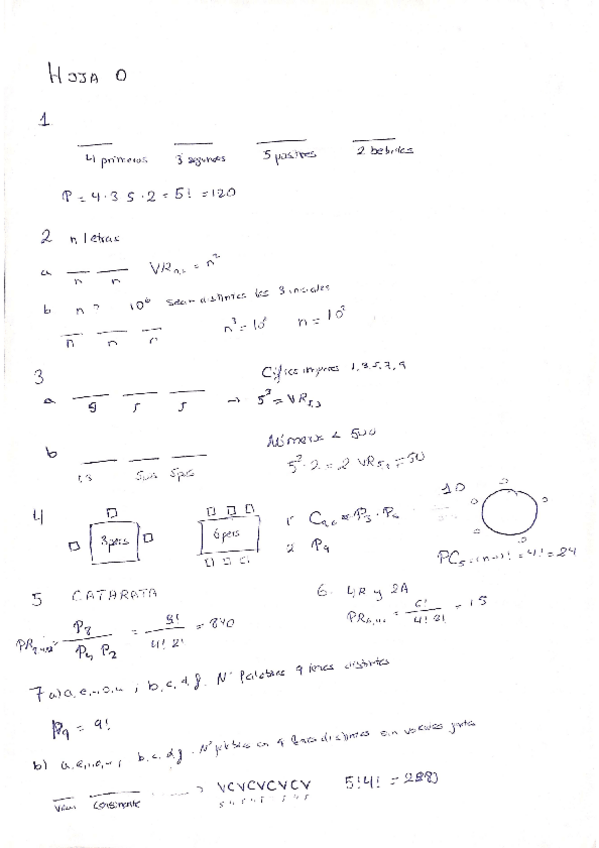 HOJA 0
1
4 primeros 3 segundos 5 postres 2 bebidas
P = 4·3 5·2 = 5! = 120
2 n letras
a n n VR = n²
b n ? 10⁶ sean distintas las 3 iniciales
n n n n³ = 10⁶ n = 10²
3 Cifras impares 1,3,5,7,9
a 5 5 5 → 5³ = VR5,3
b Números < 500
1,3 5pos 5pos 5²·2 = 2 VR5,2 = 50
4 3 pers 6 pers 1 C · P3 · P6 10
2 P9 PC5 = (n-1)! = 4! = 24
5 CATARATA 6. 4R y 2A
PR = P8 / P4 P2 = 8! / 4! 2! = 840 PR = 6! / 4! 2! = 15
7 a) a, e, i, o, u ; b, c, d, f. Nº Palabras 9 letras distintas
P9 = 9!
b) a, e, i, o, u ; b, c, d, f. Nº plbras con 9 letras distintas sin vocales juntas
vocal consonante VCVCVCVCV 5!4! = 2880